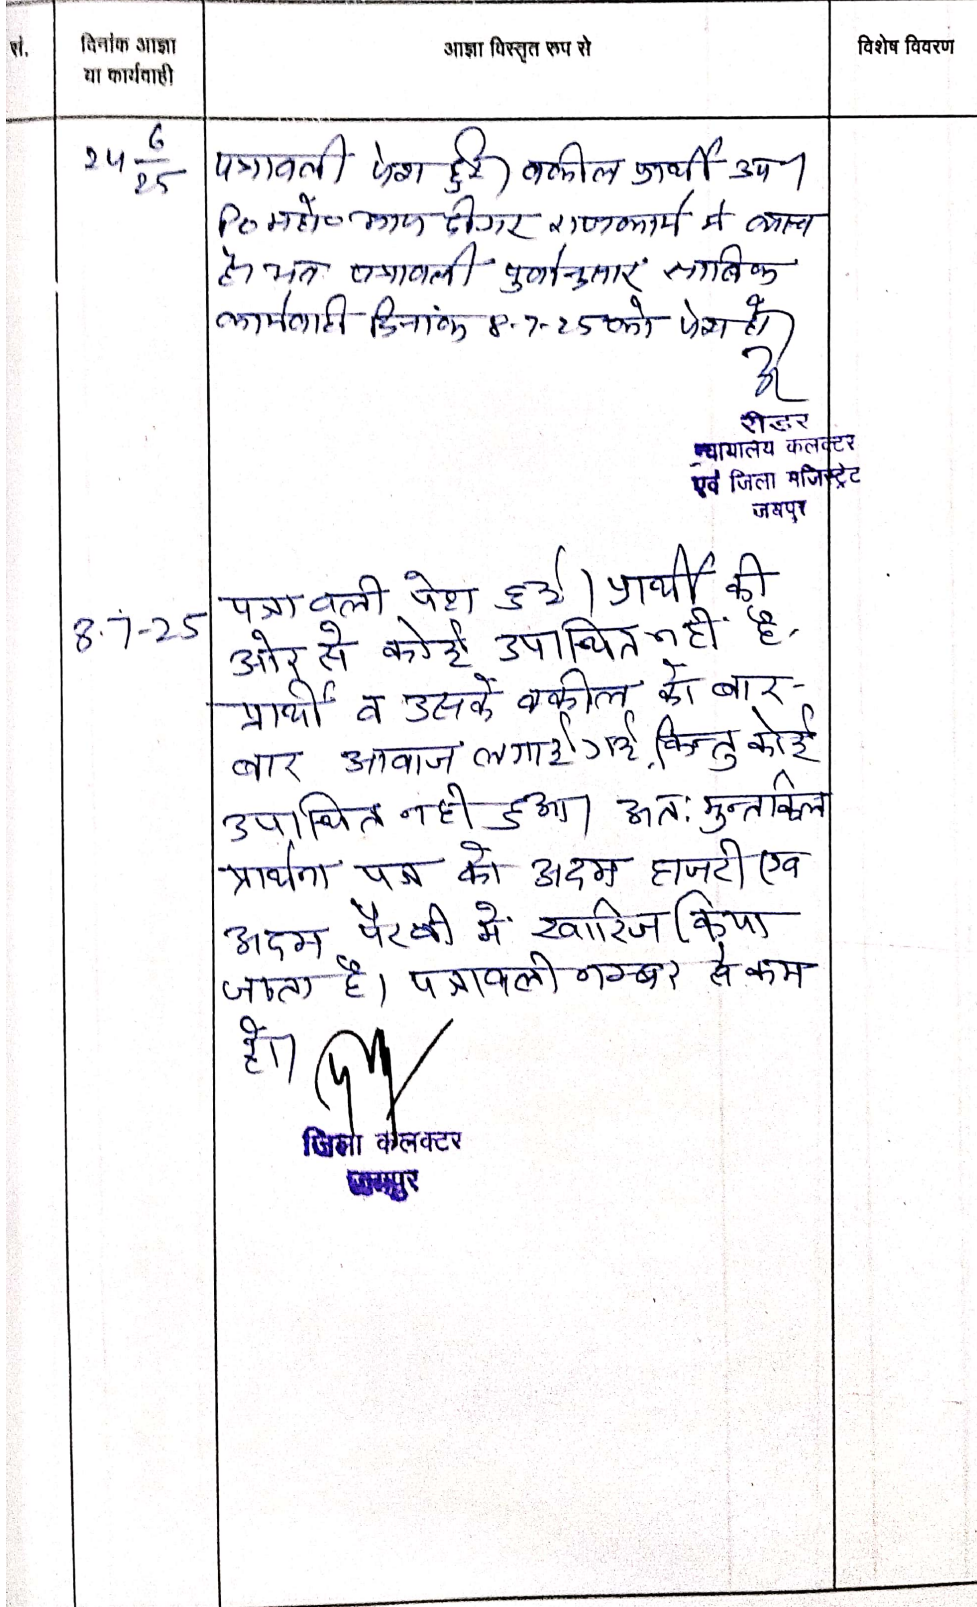 सं.
दिनांक आज्ञा
या कार्यवाही
आज्ञा विस्तृत रूप से
विशेष विवरण
24 6/25
पत्रावली पेश हुई। वकील प्रार्थी उप।
P.O महो० अन्य राजकार्य में व्यस्त
है। अतः पत्रावली पुर्वानुसार साबिक
कार्यवाही दिनांक 8-7-25 को पेश हो।
रीडर
न्यायालय कलक्टर
एवं जिला मजिस्ट्रेट
जयपुर
8-7-25
पत्रावली पेश हुई। प्रार्थी की
ओर से कोई उपस्थित नहीं है.
प्रार्थी व उसके वकील को बार-
बार आवाज लगाई गई, किन्तु कोई
उपस्थित नही हुआ। अत: मुन्तकिल
प्रार्थना पत्र को अदम हाजरी एव
अदम पैरवी में खारिज किया
जाता है। पत्रावली नम्बर से कम
हो।
जिला कलक्टर
जयपुर